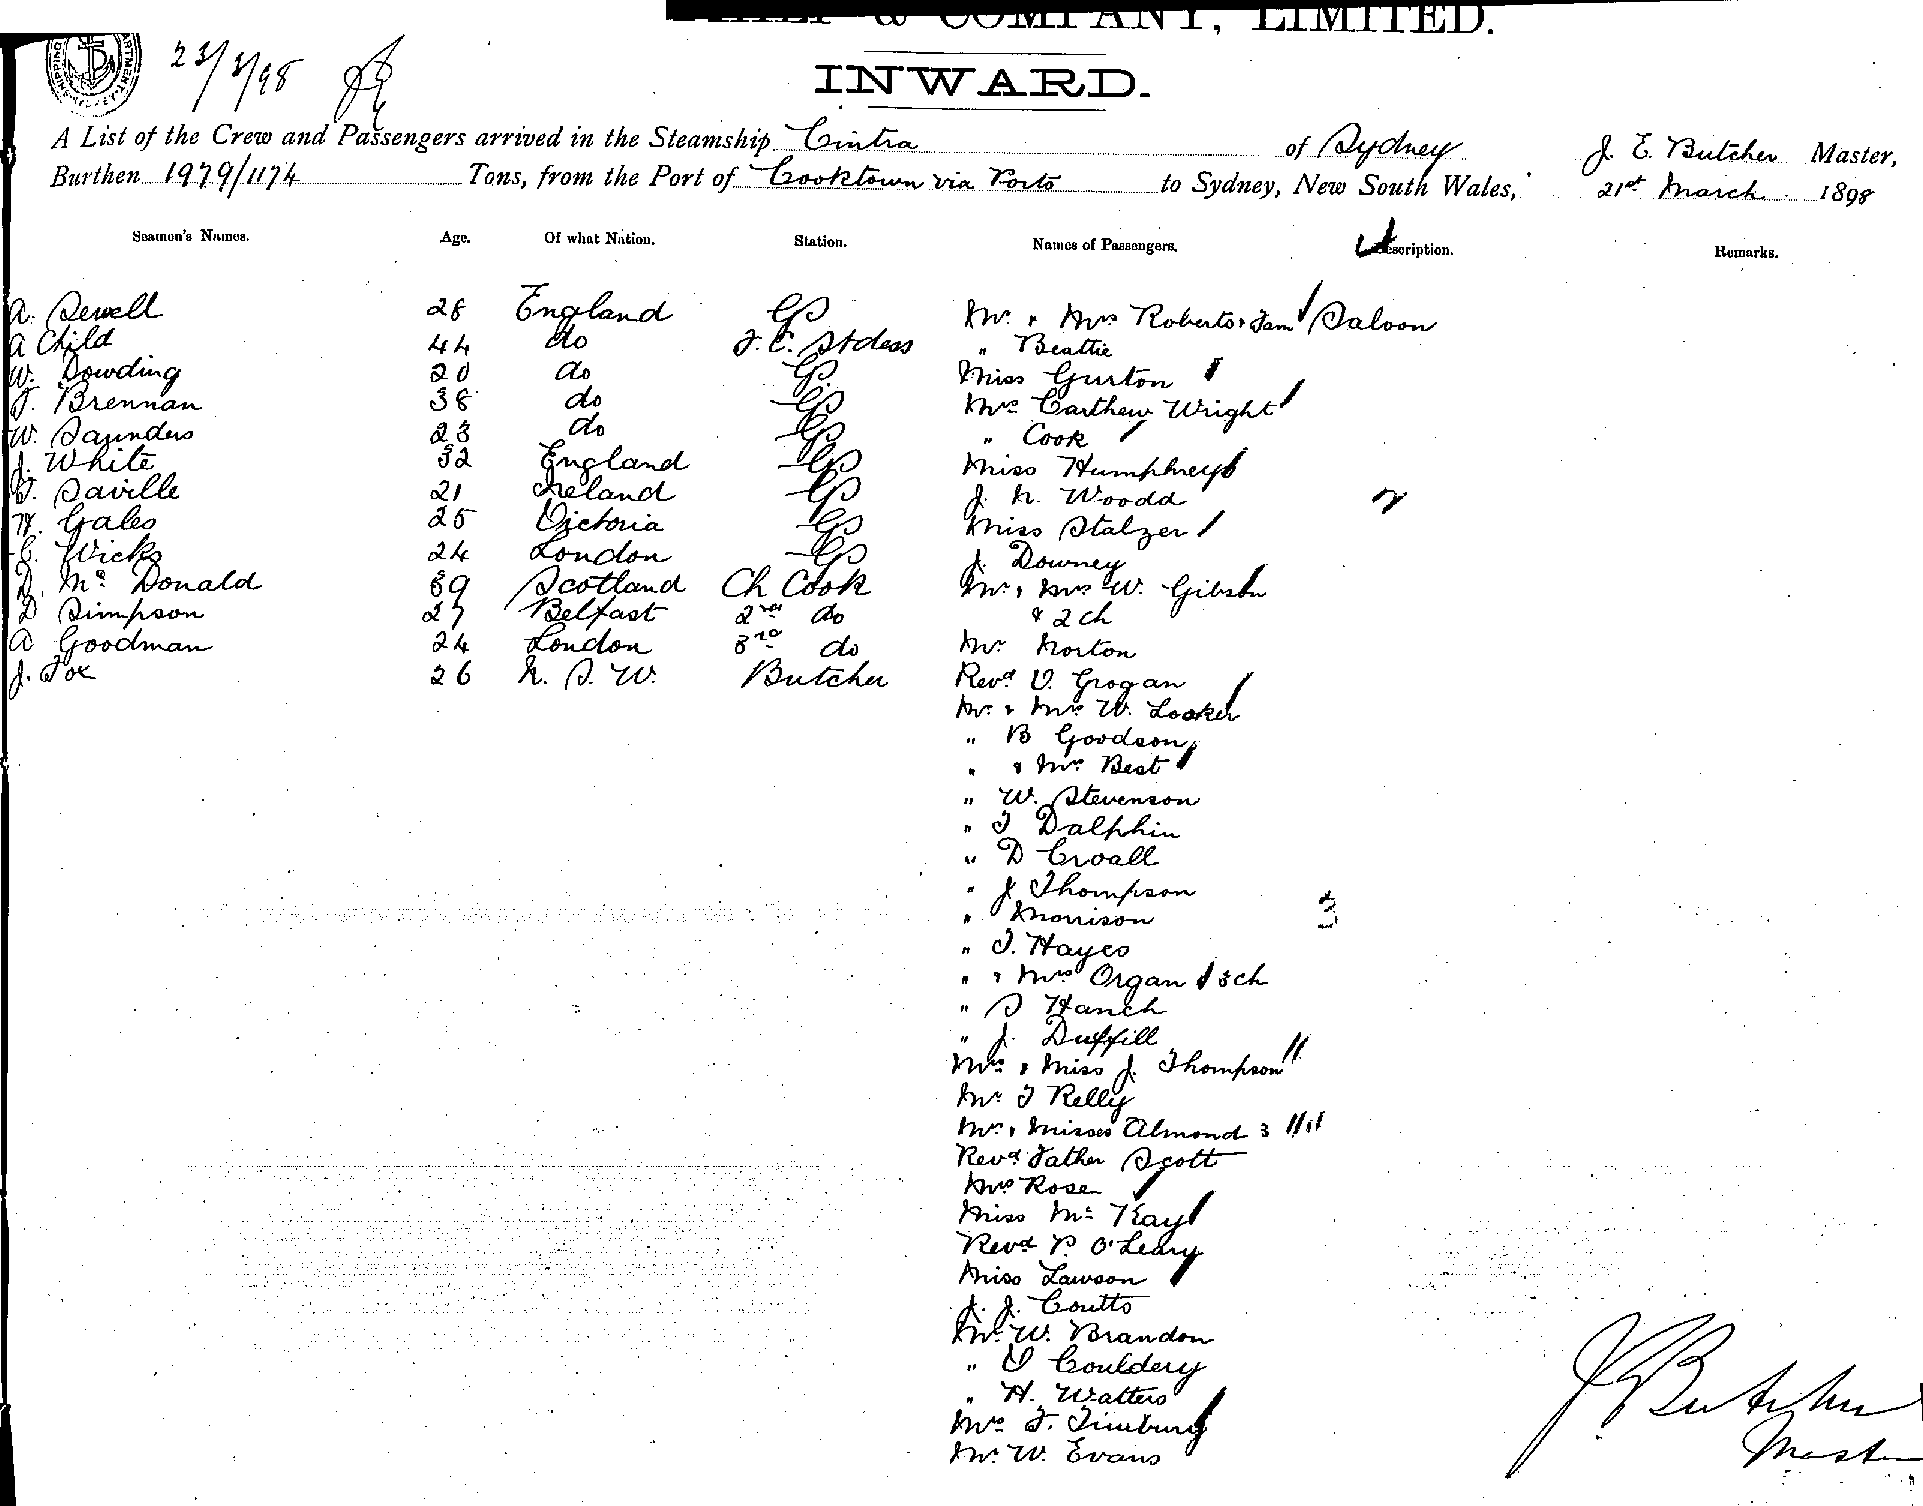 & COMPANY, LIMITED.
23/3/98
INWARD.
A List of the Crew and Passengers arrived in the Steamship Cintra of Sydney J. E. Butcher Master,
Burthen 1979/1174 Tons, from the Port of Cooktown via Ports to Sydney, New South Wales, 21st March 1898
Seamen's Names. Age. Of what Nation. Station. Names of Passengers. Description. Remarks.
A. Sewell 28 England GS Mr. & Mrs Roberts & Fam Saloon
A Child 44 do F. C. Stdess " Beattie
W. Dowding 20 do GS Miss Gurton
T. Brennan 38 do GS Mrs Carthew Wright
W. Saunders 23 do GS " Cook
J. White 32 England GS Miss Humphreys
T. Saville 21 Ireland GS J. N. Woodd
H. Gales 25 Victoria GS Miss Stalzer
C. Wicks 24 London GS J. Downey
D. Mc Donald 39 Scotland Ch Cook Mr. & Mrs W. Gibson
D Simpson 27 Belfast 2nd do & 2 ch
A Goodman 24 London 3rd do Mr Norton
J. Fox 26 N. S. W. Butcher Revd. V. Grogan
Mr. & Mrs W. Looker
" B Goodson
" & Mrs Best
" W. Stevenson
" T Dalphin
" D Croall
" J Thompson
" Morrison
" T. Hayes
" & Mrs Organ 3 ch
" S Hanch
" J. Duffill
Mrs & Miss J. Thompson
Mr T Kelly
Mrs & Misses Almond 3
Revd Father Scott
Mrs Rose
Miss Mc Kay
Revd P. O'Leary
Miss Lawson
J. J. Coutts
Mr. W. Brandon
" V Couldery
" H. Watters
Mrs F. Timbury
Mr. W. Evans
J Butcher
Master